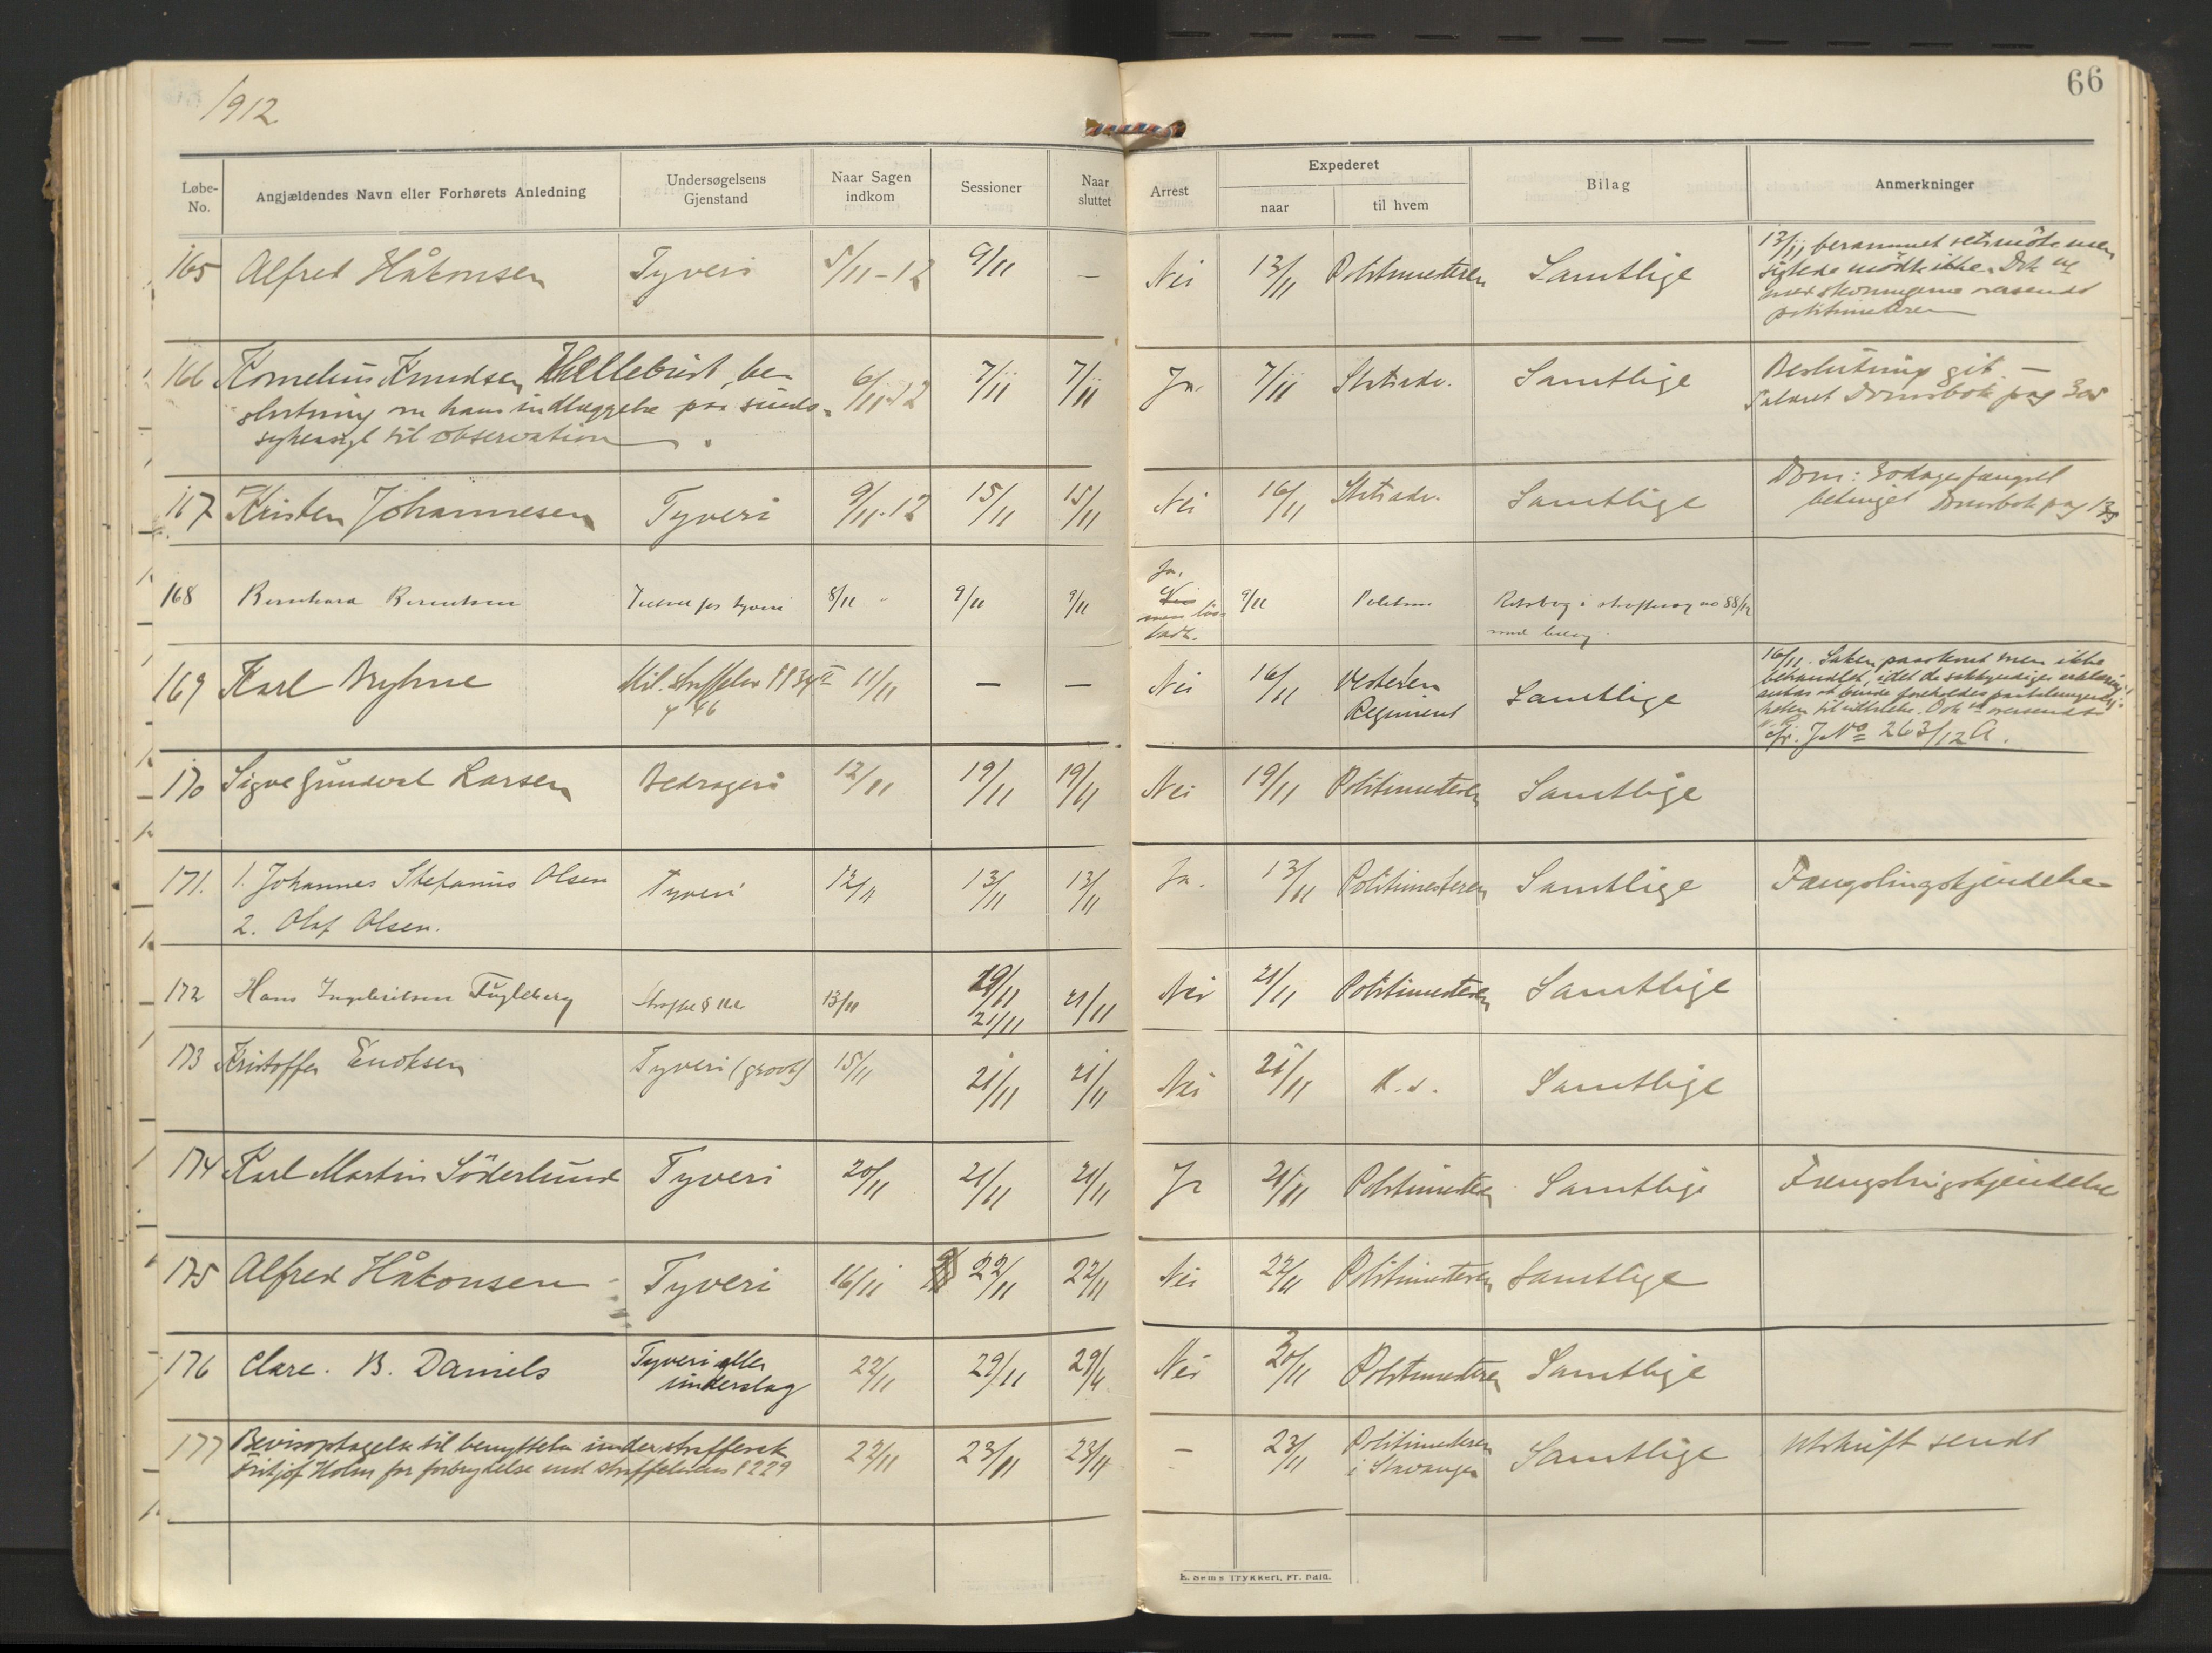 1912
66
Løbe-No. Angjældendes Navn eller Forhørets Anledning Undersøgelsens Gjenstand Naar Sagen indkom Sessioner Naar sluttet Arrest Expederet naar til hvem Bilag Anmerkninger
165 Alfred Håkonsen Tyveri 5/11-12 9/11 — Nei 13/11 Politimesteren Samtlige 13/11 berammet retsmöte men
sigtede mödte ikke. Dok
oversendt
politimesteren
166 Kornelius Knudsen Hellebust, be-
slutning om hans indlæggelse paa sinds-
sykeasyl til observation. 6/11-12 7/11 7/11 Ja. 7/11 Statsadv. Samtlige Beslutning git —
Domsbok pag 305
167 Kristen Johannesen Tyveri 9/11-12 15/11 15/11 Nei 16/11 Statsadv. Samtlige Dom: 30 dages fængsel
betinget Domsbok pag
168 Bernhard Berntsen for tyveri 8/11 9/11 9/11 Ja.
Nei
men
9/11 Politim Retsbog i straffesag no 88/12
med bilag.
169 Karl Bryhne Mil. straffelov §§ 34 II
46 11/11 — — Nei 16/11 Vesteren
Regiment Samtlige 16/11. Saken men ikke
behandlet, idet de sakkyndiges erklæring
oversendt
J. No 263/12 A.
170 Sigve Gundval Larsen Bedrageri 12/11 19/11 19/11 Nei 19/11 Politimesteren Samtlige
171. 1. Johannes Stefanus Olsen Tyveri 12/11 13/11 13/11 Ja. 13/11 Politimesteren Samtlige Fængslingskjendelse
2. Olaf Olsen.
172 Hans Ingebritsen Fugleberg 13/11 19/11
21/11 21/11 Nei 21/11 Politimesteren Samtlige
173 Kristoffer Enoksen Tyveri (grovt) 15/11 21/11 21/11 Nei 21/11 K.s. Samtlige
174 Karl Martin Söderlund Tyveri 20/11 21/11 21/11 Ja 21/11 Politimesteren Samtlige Fængslingskjendelse
175 Alfred Håkonsen Tyveri 16/11 22/11 22/11 Nei 22/11 Politimesteren Samtlige
176 Clare. B. Daniels Tyveri eller
underslag 22/11 29/11 29/11 Nei Politimesteren Samtlige
177 Bevisoptagelse til benyttelse under straffesak
Fritjof Holm for forbrydelse mod straffelovens § 229 22/11 23/11 23/11 — 23/11 Politimesteren
i Stavanger Samtlige Utskrift sendt
E. Sems Trykkeri, Fr. Hald.